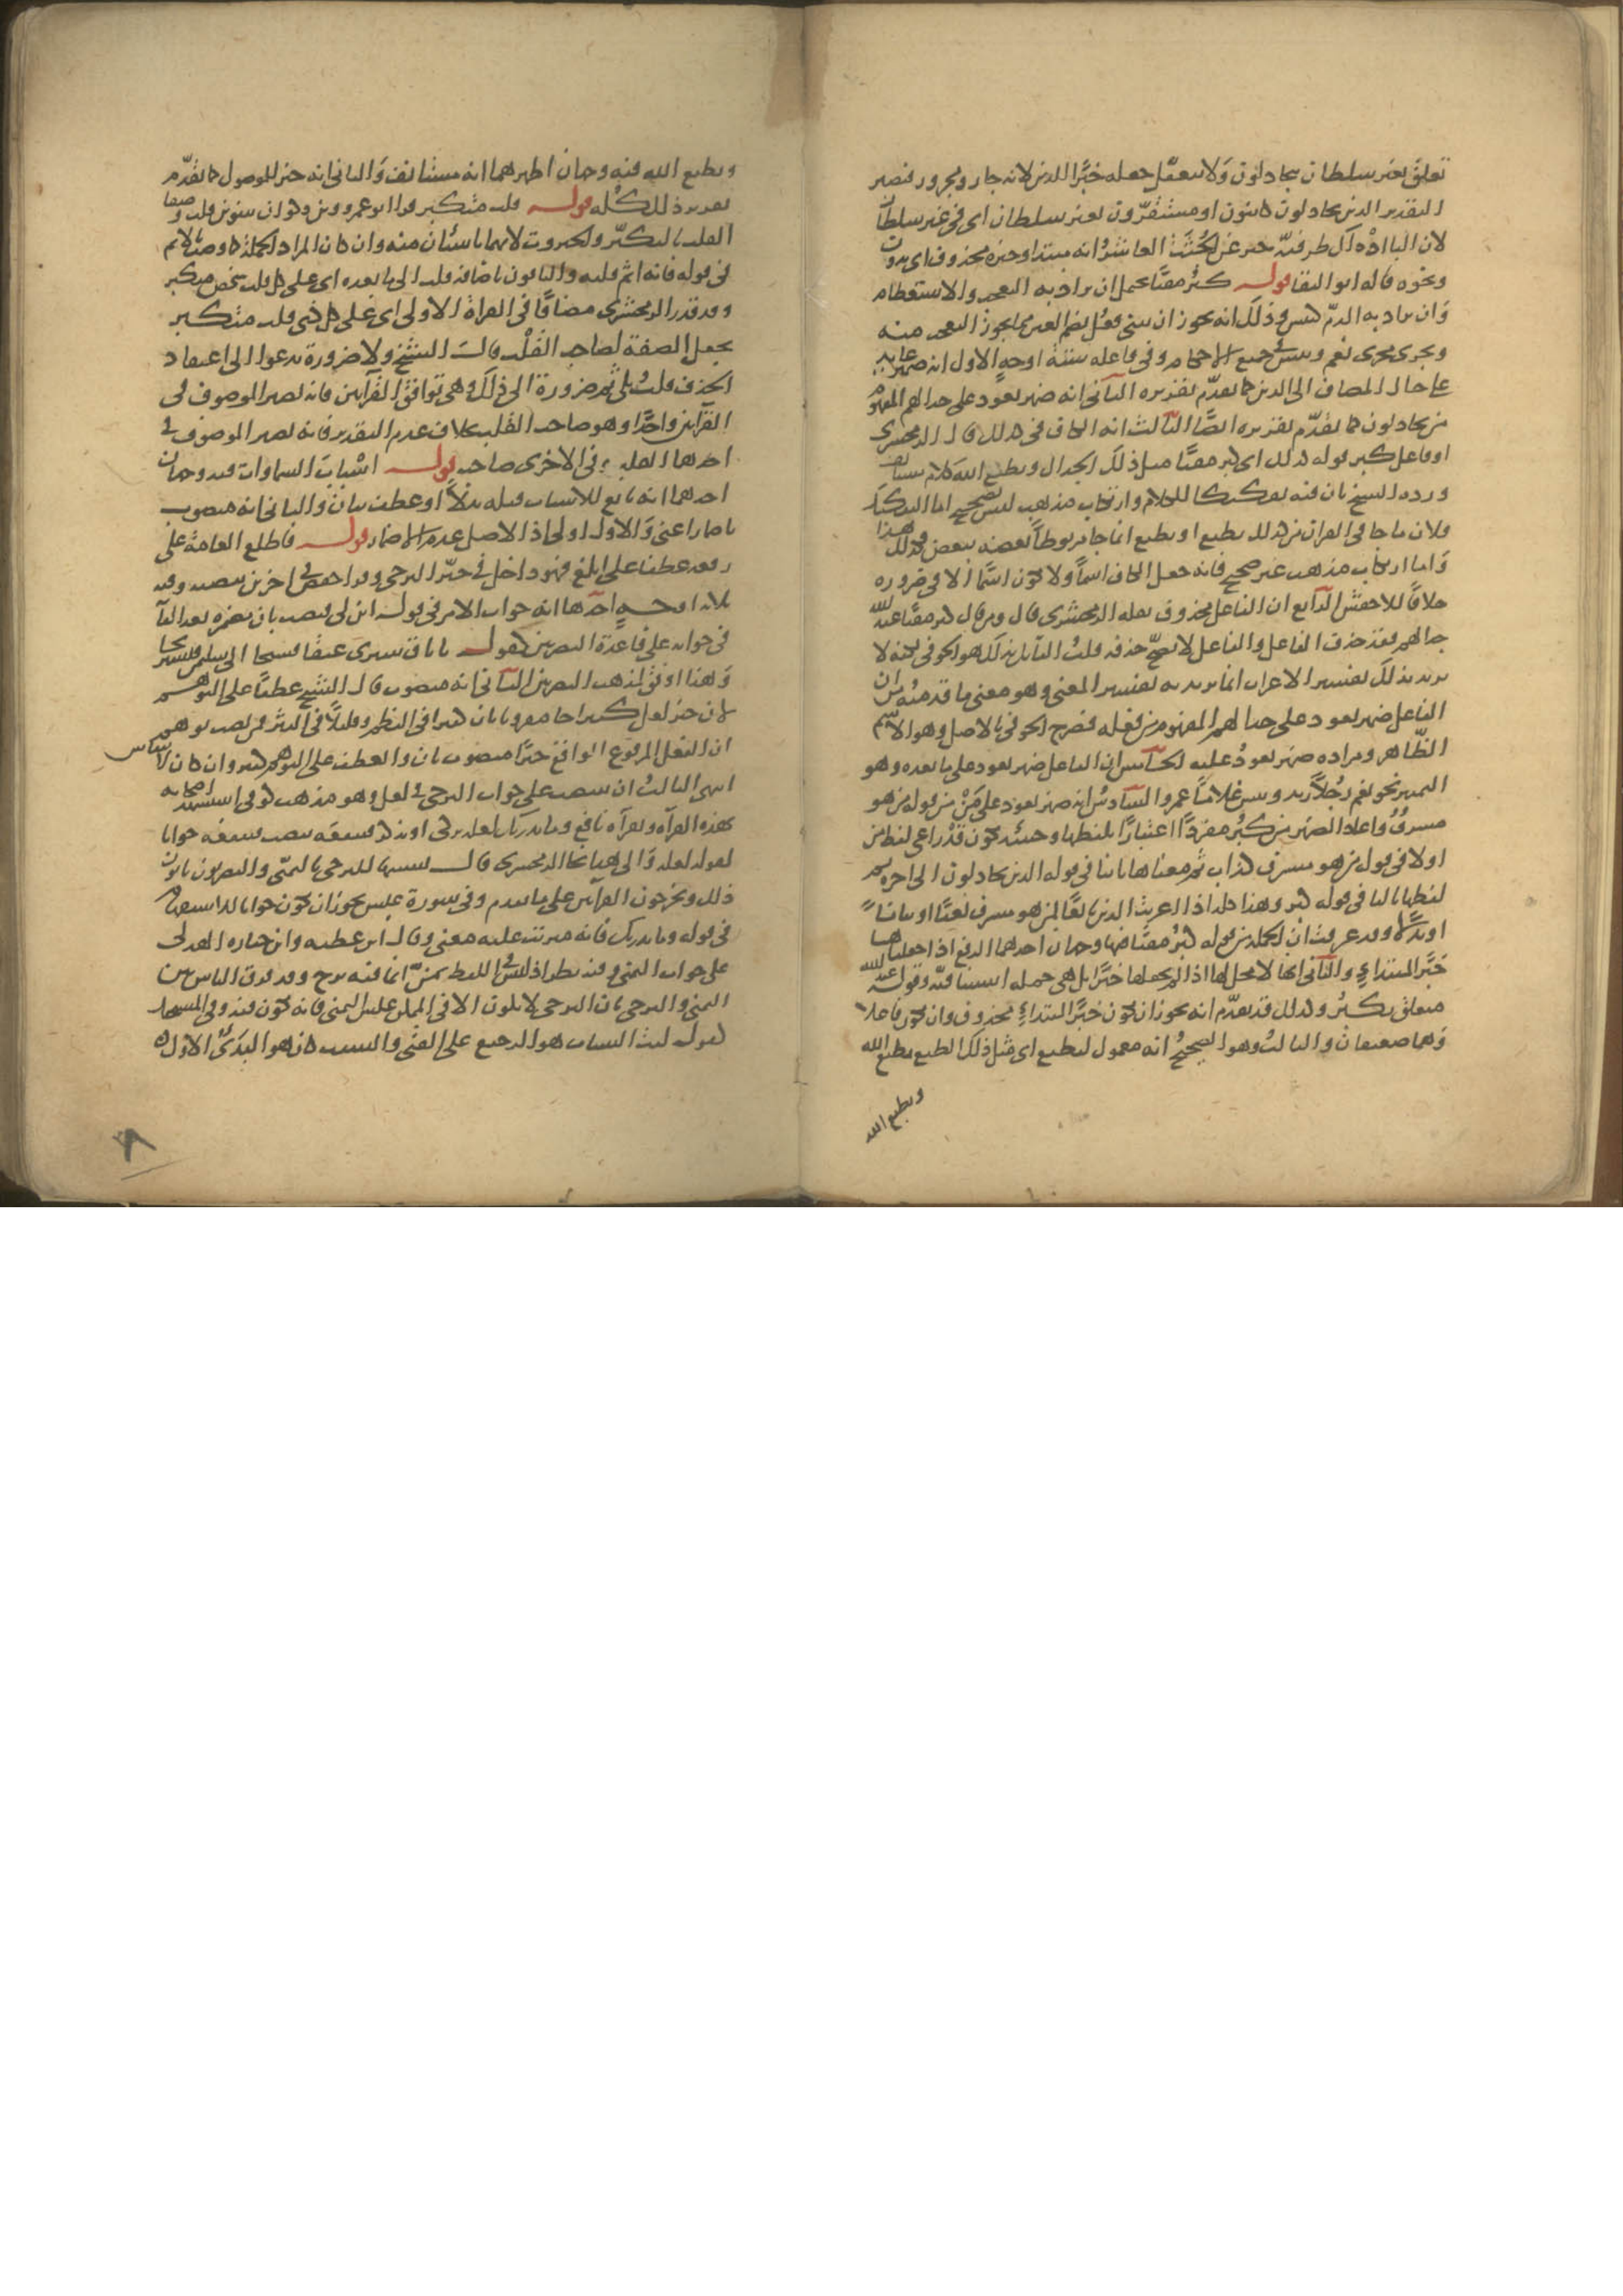 تعلق بغير سلطان بيجادلون ولا يتعقل جعله خبرًا للذين لانه جار ومجرور فيصير
التقدير الذين يجادلون كائنون او مستقرون بغير سلطان اى فى غير سلطان
لان الباء اذ ذاك ظرفية خبر عن الجثث العاشر انه مبتدا وخبره محذوف اى
ونحوه قاله ابو البقا قوله كبر مقتا يحتمل ان يراد به التعجب والاستعظام
وان يراد به الذم كبئس وذلك انه يجوز ان يبنى فعل بضم العين مما يجوز التعجب منه
ويجرى مجرى نعم وبئس فى جميع الاحكام وفى فاعله ستة اوجه الاول انه ضمير عائد
على حال المضاف الى الذين كما تقدم تقريره الثانى انه ضمير يعود على جدالهم المفهوم
من يجادلون كما تقدم تقريره ايضًا الثالث انه الكاف فى كذلك قال الزمخشرى
او فاعل كبر قوله كذلك اى كبر مقتًا مثل ذلك الجدال ويطبع الله كلام مستانف
ورده الشيخ بان فيه تفكيكا للكلام وارتكاب مذهب ليس بصحيح اما التفكيك
فلان ما جا فى القران من كذلك نطبع او يطبع انما جا مربوطًا بعضه ببعض فكذلك هذا
واما ارتكاب مذهب غير صحيح فانه جعل الكاف اسمًا ولا تكون اسمًا الا فى ضرورة
خلافًا للاخفش الرابع ان الفاعل محذوف نقله الزمخشرى قال ومن قال كبر مقتا عند الله
جدالهم فقد حذف الفاعل والفاعل لا يصح حذفه قلت القائل بذلك هو الحوفى لكنه لا
يريد بذلك تفسير الاعراب انما يريد به تفسير المعنى وهو معنى ما قدمته من ان
الفاعل ضمير يعود على جدالهم المفهوم من فعله فصرح الحوفى بالاصل وهو الاسم
الظاهر ومراده ضمير يعود عليه الخامس ان الفاعل ضمير يعود على ما بعده وهو
التمييز نحو نعم رجلًا زيد وبئس غلامًا عمرو السادس انه ضمير يعود على من من قوله من هو
مسرف واعاد الضمير من كبر مفردًا اعتبارًا بلفظها وحينئذ يكون قد راعى لفظ من
اولا فى قوله من هو مسرف كذاب ثم معناها ثانيا فى قوله الذين يجادلون الى اخره ثم
لفظها ثالثا فى قوله كبر وهذا كله اذا اعربت الذين تابعًا لمن هو مسرف نعتًا او بيانًا
او بدلًا وقد عرفت ان الجملة من قوله كبر مقتًا فيها وجهان احدهما الرفع اذا جعلناها
خبرًا لمبتداء والثانى انها لا محل لها اذا لم يجعلها خبرًا بل هى جملة استئنافية وقوله عند الله
متعلق بكبر وكذلك قد تقدم انه يجوز ان يكون خبرًا لمبتداء محذوف وان يكون فاعلا
وهما ضعيفان والثالث وهو الصحيح انه معمول ليطبع اى مثل ذلك الطبع يطبع الله
ويطبع الله
ويطبع الله فيه وجهان اظهرهما انه مستانف والثانى انه خبر للموصول كما تقدم
تقرير ذلك كله قوله قلب متكبر قرا ابو عمرو وابن ذكوان بتنوين قلب وصفا
القلب بالتكبر والجبروت لانهما ناشئان منه وان كان المراد الجملة كما وصف بالاثم
فى قوله فانه اثم قلبه والباقون باضافة قلب الى ما بعده اى على كل قلب شخص متكبر
وقد قدر الزمخشرى مضافًا فى القراة الاولى اى على كل ذى قلب متكبر
بجعل الصفة لصاحب القلب قال الشيخ ولا ضرورة تدعوا الى اعتقاد
الحذف قلت بلى ثم ضرورة الى ذلك وهى توافق القرآتين فانه يصير الموصوف فى
القرآتين واحدًا وهو صاحب القلب بخلاف عدم التقدير فانه يصير الموصوف فى
احدهما القلب وفى الاخرى صاحبه قوله اسباب السماوات فيه وجهان
احدهما انه تابع للاسباب قبله بدلًا او عطف بيان والثانى انه منصوب
باضمار اعنى والاول اولى اذ الاصل عدم الاضمار قوله فاطلع العامة على
رفعه عطفا على ابلغ فهو داخل فى حيز الترجى وقرا حفص فى اخرين بنصبه وفيه
ثلاثة اوجه احدها انه جواب الامر فى قوله ابن لى فنصب بان مضمرة بعد الفآ
فى جوابه على قاعدة البصريين كقوله يا ناق سيرى عنقا فسيحا الى سليمن فنستريحا
وهذا اوفق لمذهب البصريين الثانى انه منصوب قال الشيخ عطفًا على التوهم
لان خبر لعل كثيرا جا مقرونا بان كثيرا فى النظم وقليلًا فى النثر فمن نصب توهم
ان الفعل المرفوع الواقع خبرًا منصوب بان والعطف على التوهم كثير وان كان لا ينقاس
انتهى الثالث ان ينصب على جواب الترجى فى لعل وهو مذهب كوفى استشهد اصحابه
بهذه القرآة وبقرآة نافع وما يدريك لعله يزكى او يذكر فتنفعه بنصب فتنفعه جوابا
لقوله لعله والى هذا نحا الزمخشرى قال تشبيها للترجى بالتمنى والبصريون يابون
ذلك ويخرجون القرآتين على ما تقدم وفى سورة عبس يجوز ان يكون جوابا للاستفهام
فى قوله وما يدريك فانه مترتب عليه معنى وقال ابن عطيه وابن جبارة الهذلى
على جواب التمنى وفيه نظر اذ ليس فى اللفظ تمن انما فيه ترج وقد فرق الناس بين
التمنى والترجى بان الترجى لا يكون الا فى الممكن عكس التمنى فانه يكون فيه وفى المستحيل
كقوله ليت الشباب هو الرجيع على الفتى والشيب كان هو البدئ الاول
٨